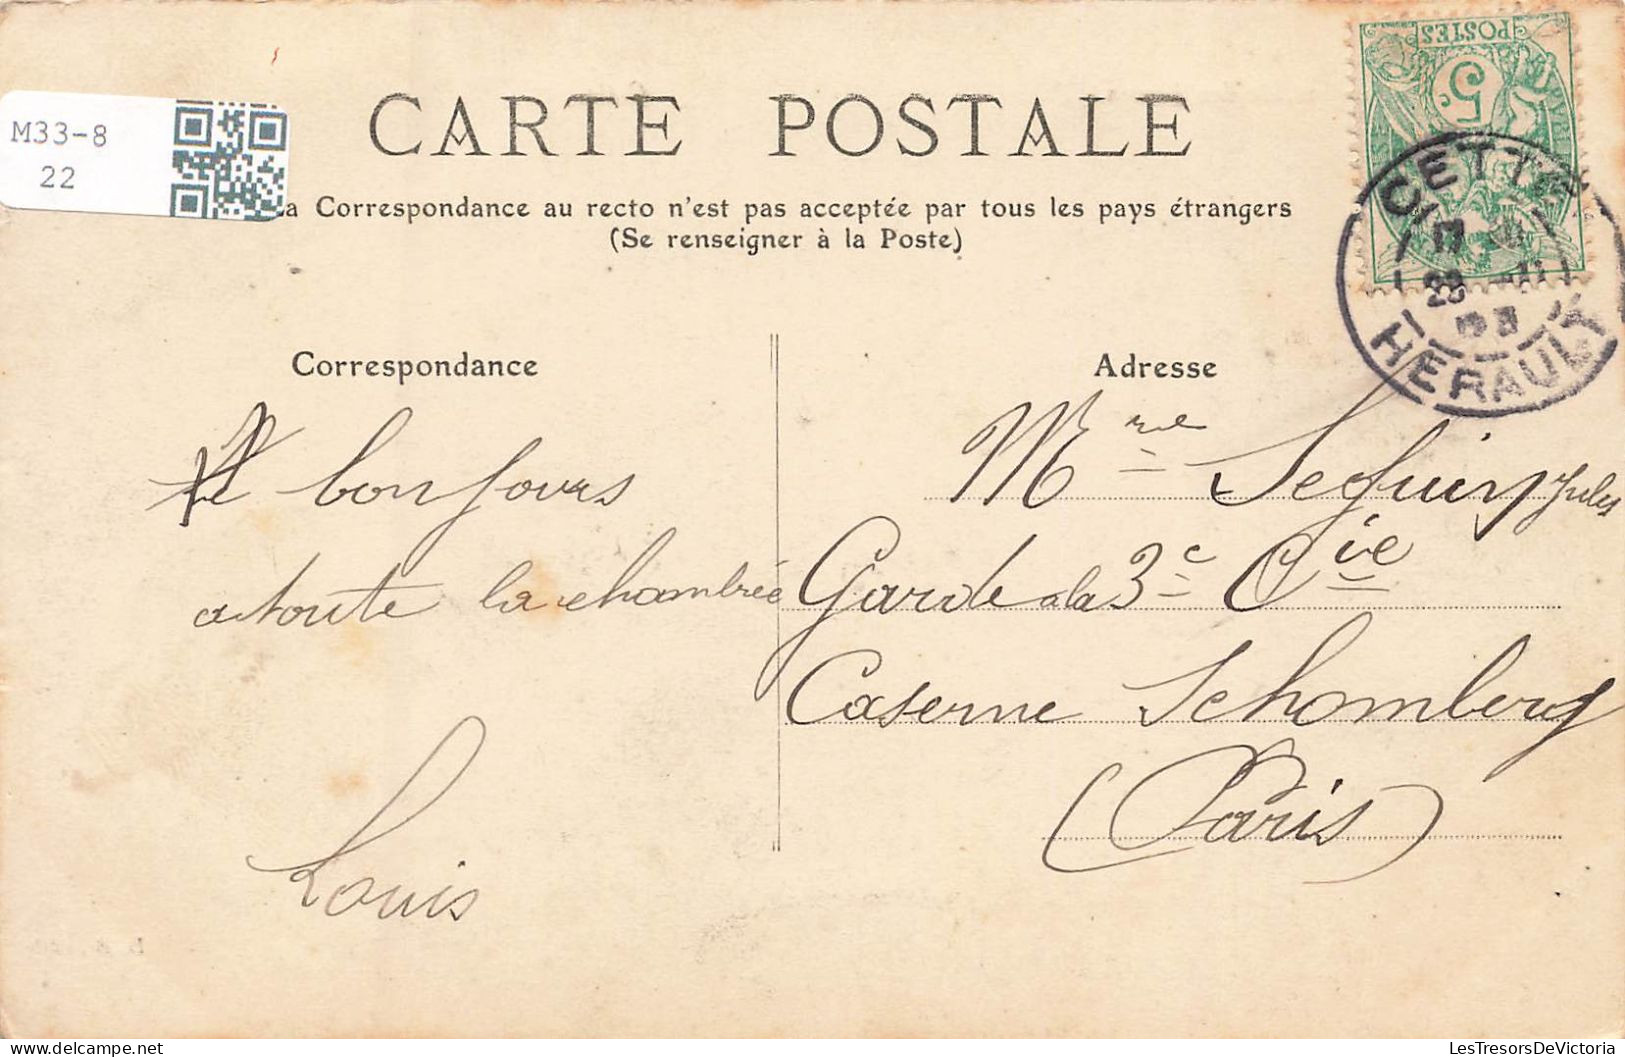 M33-8
22
CARTE POSTALE
a Correspondance au recto n'est pas acceptée par tous les pays étrangers
(Se renseigner à la Poste)
POSTES
5 c
CETTE
17
23
HERAULT
Correspondance
Adresse
bonjours
a toute la chambrée
Louis
Mme Seguin Jules
Garde a la 3e Cie
Caserne Schomberg
(Paris)
LesTresorsDeVictoria